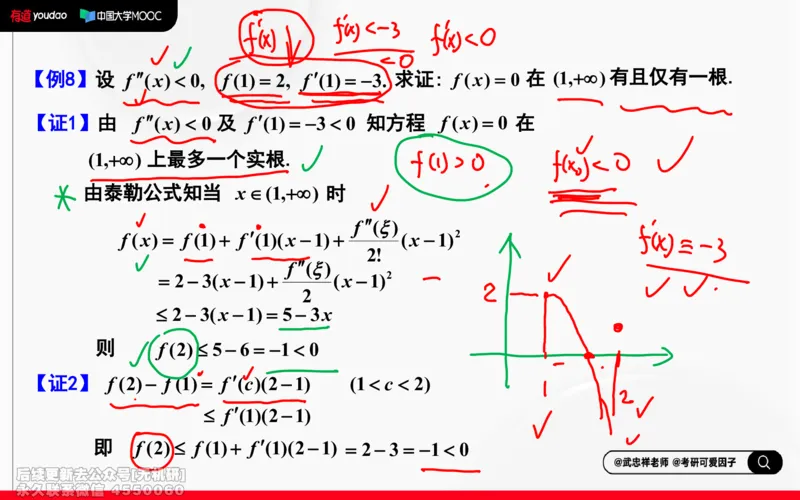 有道youdao 中国大学MOOC
f'(x)↓ f'(x)<-3 f'(x)<0
<0
【例8】设 f''(x)<0, f(1)=2, f'(1)=-3. 求证: f(x)=0 在 (1,+∞) 有且仅有一根.
【证1】由 f''(x)<0 及 f'(1)=-3<0 知方程 f(x)=0 在
(1,+∞) 上最多一个实根. ✓ f(1)>0 f(x₀)<0 ✓
* 由泰勒公式知当 x∈(1,+∞) 时
f(x)=f(1)+f'(1)(x-1)+f''(ξ)/2!(x-1)²
f'(x)≡-3
=2-3(x-1)+f''(ξ)/2(x-1)²
2
≤2-3(x-1)=5-3x
则 f(2)≤5-6=-1<0
【证2】 f(2)-f(1)=f'(c)(2-1) (1<c<2)
1 2
≤f'(1)(2-1)
即 f(2)≤f(1)+f'(1)(2-1)=2-3=-1<0
@武忠祥老师 @考研可爱因子
后续更新去公众号[无机研]
永久联系微信 4550060